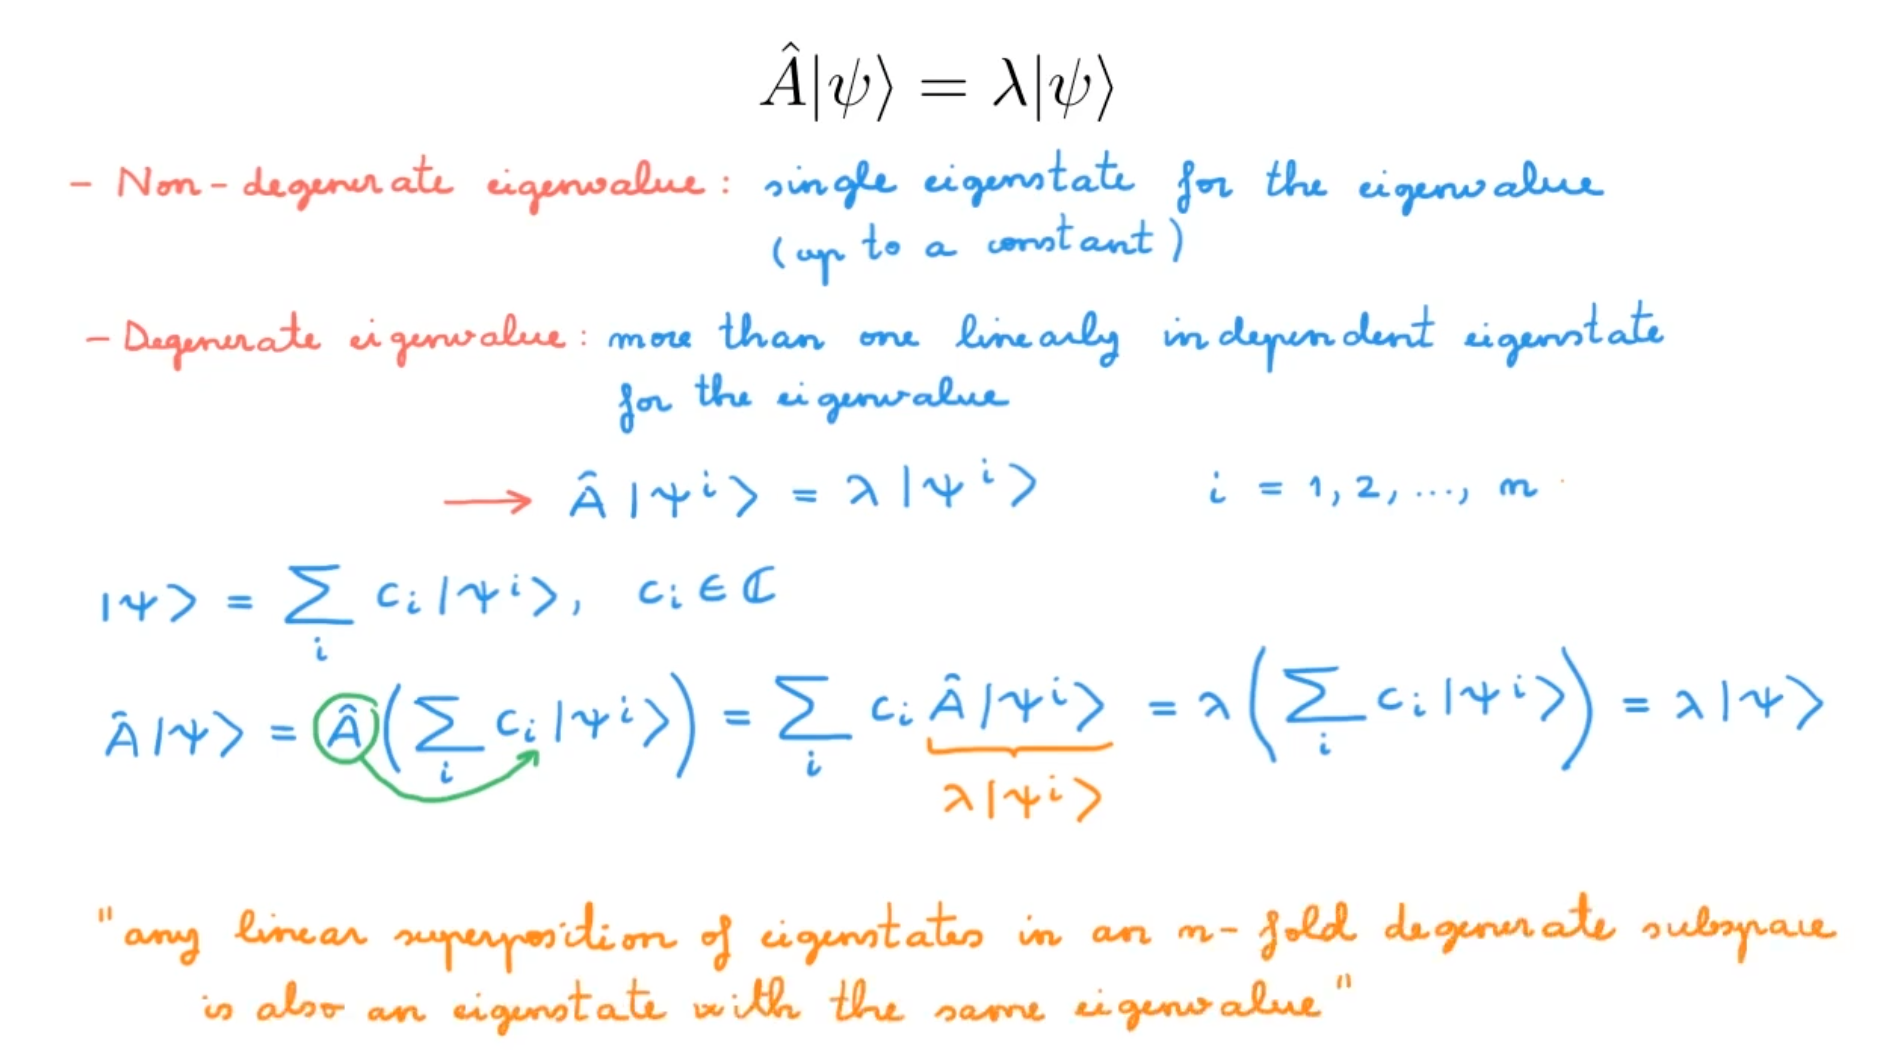 Â|ψ⟩ = λ|ψ⟩
- Non-degenerate eigenvalue: single eigenstate for the eigenvalue
(up to a constant)
- Degenerate eigenvalue: more than one linearly independent eigenstate
for the eigenvalue
→ Â|ψⁱ⟩ = λ|ψⁱ⟩ i = 1, 2, ..., n
|ψ⟩ = ∑ᵢ cᵢ|ψⁱ⟩, cᵢ ∈ ℂ
Â|ψ⟩ = Â(∑ᵢ cᵢ|ψⁱ⟩) = ∑ᵢ cᵢ Â|ψⁱ⟩ = λ(∑ᵢ cᵢ|ψⁱ⟩) = λ|ψ⟩
λ|ψⁱ⟩
"any linear superposition of eigenstates in an n-fold degenerate subspace
is also an eigenstate with the same eigenvalue"